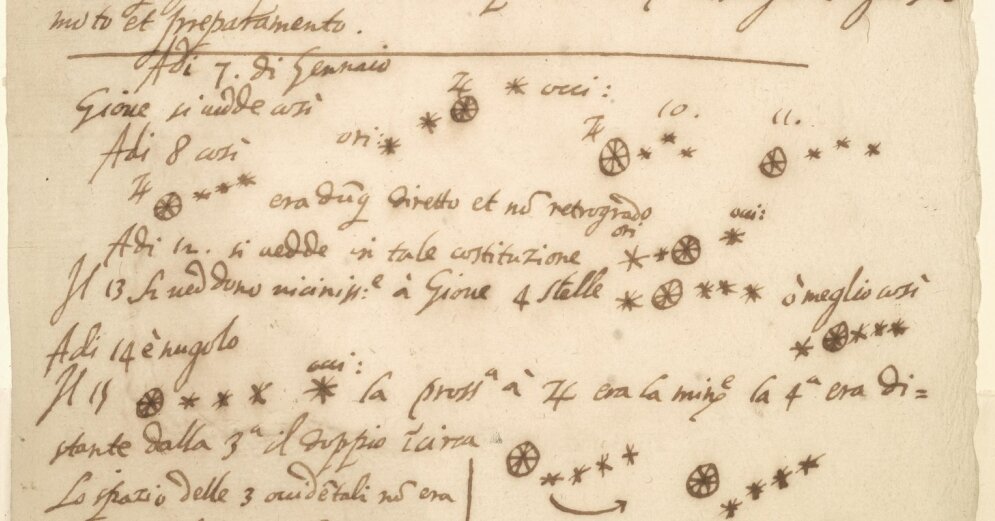 moto et preparamento.
Adi 7. di Gennaio
Gioue si uedde così
♃ occi:
ori:
Adi 8 così
♃ 10. 11.
♃ era dūq diretto et nō retrogrado
Adi 12. si uedde in tale costituzione
ori occi:
Il 13 si ueddono uiciniss:e à Gioue 4 stelle ò meglio così
Adi 14 è nugolo
Il 15 occi: la prossa à ♃ era la mine la 4a era di=
stante dalla 3a il doppio circa
Lo spazio delle 3 occidētali nō era